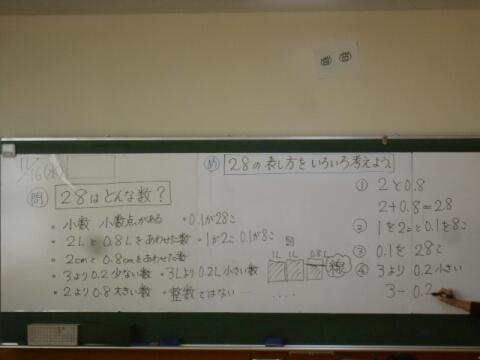 11/16(水)
問 2.8はどんな数？
・小数 小数点がある
・2Lと0.8Lをあわせた数
・2cmと0.8cmをあわせた数
・3より0.2少ない数
・2より0.8大きい数
・0.1が28こ
・1が2こ 0.1が8こ
・3Lより0.2L小さい数
・整数ではない…
め 2.8の表し方をいろいろ考えよう。
図
1L 1L 0.8L
線
① 2と0.8
2+0.8=2.8
② 1を2こと0.1を8こ
③ 0.1を28こ
④ 3より0.2小さい
3-0.2